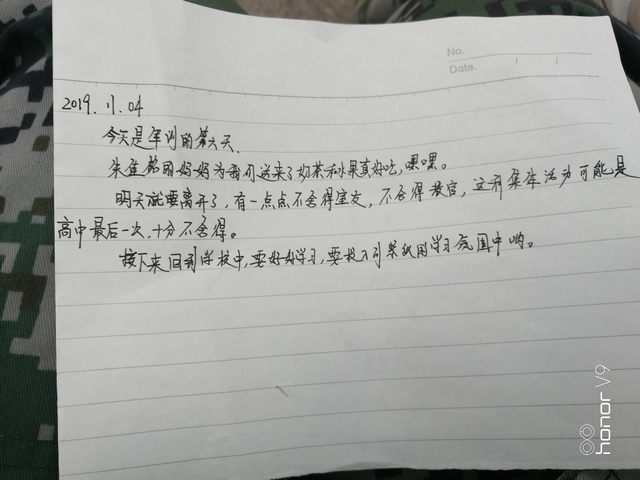 No.
Date.
2019.11.04
今天是军训的第六天.
朱 的妈妈为我们送来了奶茶和水果真好吃,嘿嘿。
明天就要离开了,有一点点不舍得室友,不舍得教官,这种集体活动可能是
高中最后一次,十分不舍得。
接下来回到学校中,要好好学习,要投入到紧张的学习氛围中哟。
honor V9